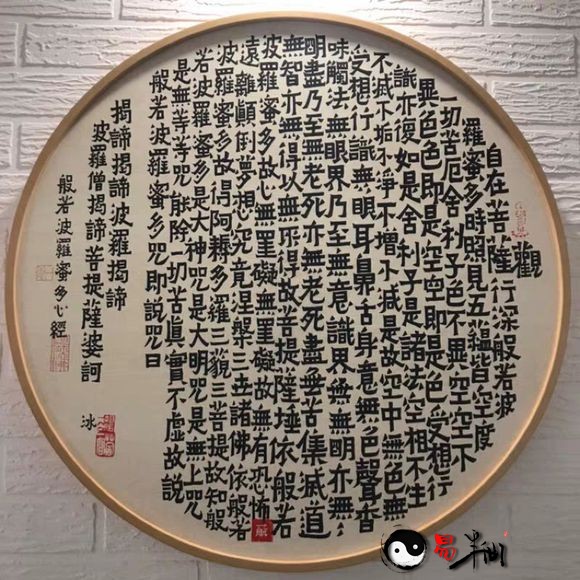 觀
自在菩薩
行深般若波
羅蜜多時照見五蘊皆空度
一切苦厄舍利子色不異空空不
異色色即是空空即是色受想行
識亦復如是舍利子是諸法空相不生
不滅不垢不淨不增不減是故空中無色無
受想行識無眼耳鼻舌身意無色聲香
味觸法無眼界乃至無意識界無無明亦無無
明盡乃至無老死亦無老死盡無苦集滅道
無智亦無得以無所得故菩提薩埵依般若
波羅蜜多故心無罣礙無罣礙故無有恐怖
遠離顛倒夢想究竟涅槃三世諸佛依般若
波羅蜜多故得阿耨多羅三藐三菩提故知般
若波羅蜜多是大神咒是大明咒是無上咒
是無等等咒能除一切苦真實不虛故說
般若波羅蜜多咒即說咒曰
揭諦揭諦波羅揭諦
波羅僧揭諦菩提薩婆訶
般若波羅蜜多心經
冰
易半仙